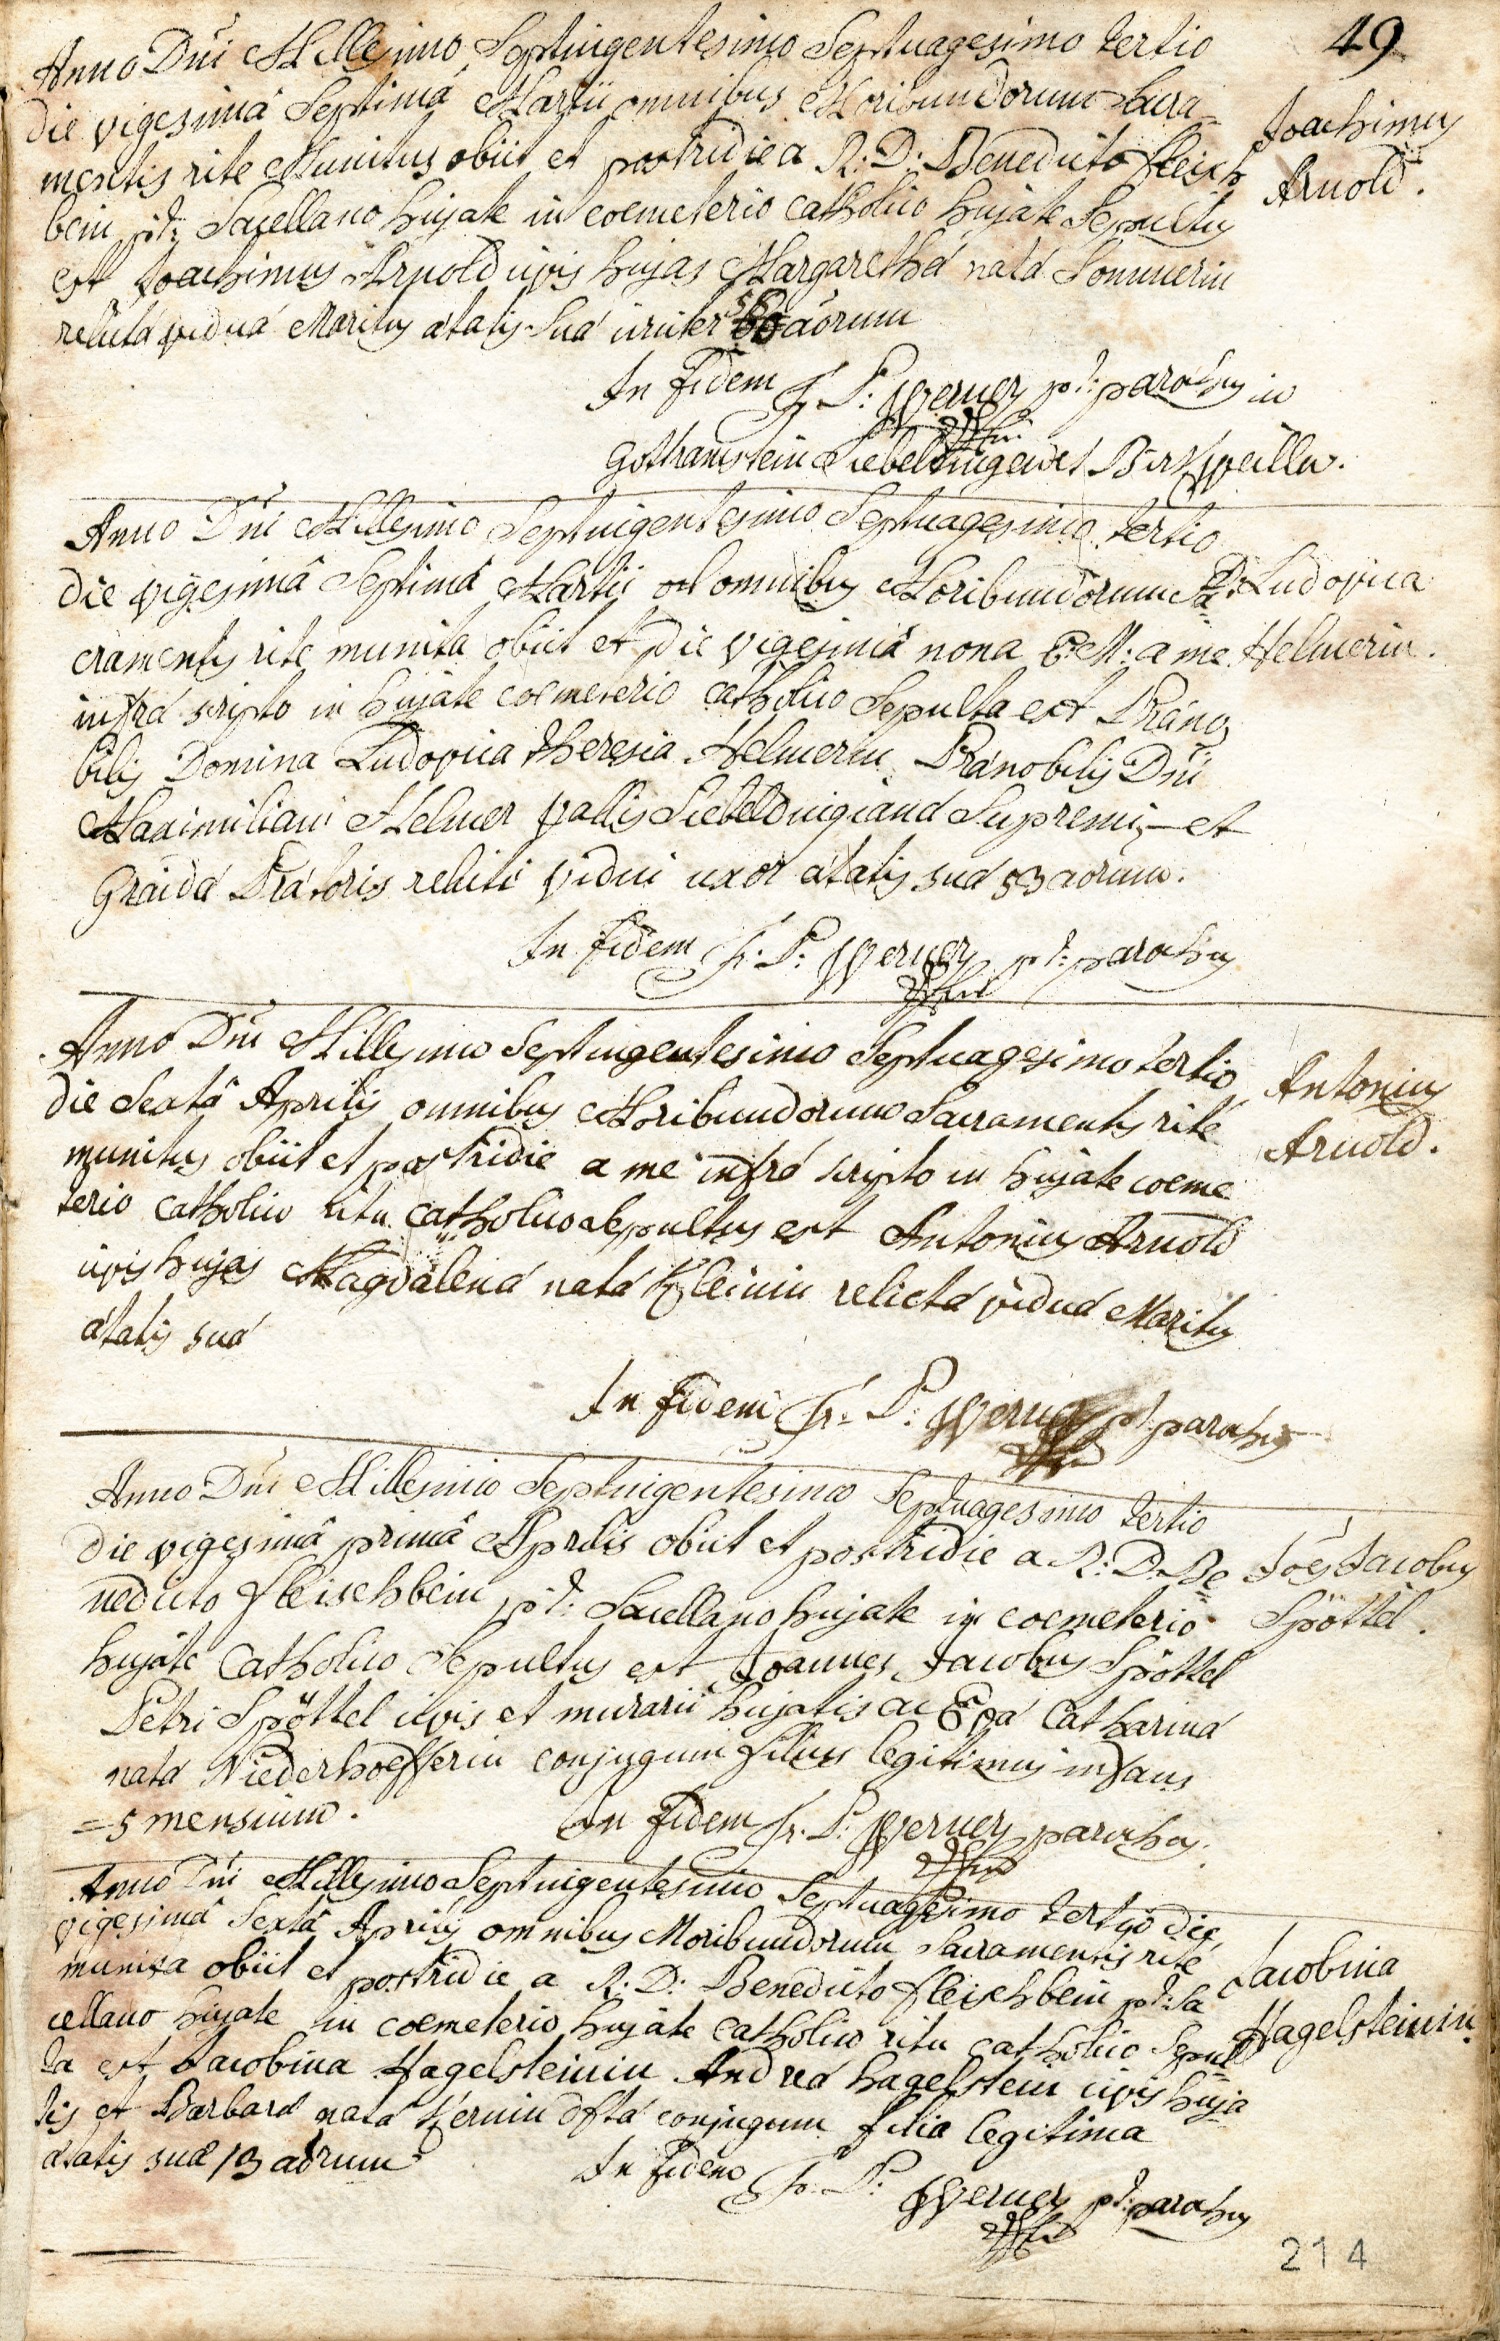 49
Anno Dni Millesimo Septuigentesimo Septuagesimo tertio
die vigesimâ Septimâ Martii omnibus Moribundorum Sacra=
mentis rite Munitus obiit et postridie a R: D: Benedicto fleisch
bein p.t: Sacellano hujate in coemeterio catholico hujate Sepultus
est Joachimus Arnold civis hujas Margaretha nata Sommerin
relicta vidua Maritus ætatis Sua circiter 58 aorum
Joachimus
Arnold.
In Fidem Fr. P: Werner p.t: parochus in
Gothramstein Siebeldingen et Birkweiller.
Anno Dni Millesimo Septuigentesimo Septuagesimo tertio
die vigesimâ Septimâ Martii omnibus Moribundorum Sa=
cramentis rite munita obiit et die vigesimâ nona E: M: a me
infrá scripto in hujate coemeterio catholico Sepulta est Præno
bilis Domina Ludovica Theresia Helmerin Prænobilis Dni
Maximiliani Helmer vallis Siebeldingianæ Supremi et
Prætoris relicti vidui uxor ætatis suæ 53 aorum.
D: Ludovica
Helmerin.
In Fidem Fr. P: Werner p.t: parochus
Anno Dni Millesimo Septuigentesimo Septuagesimo tertio
die Sextâ Aprilis omnibus Moribundorum Sacramentis rité
munitus obiit et postridie a me infrá scripto in hujate coeme
terio catholico ritu catholico sepultus est Antonius Arnold
civis hujas Magdalena nata Kleinin relicta vidua Maritus
ætatis suæ
Antonius
Arnold.
In Fidem Fr. P: Werner p.t. parochus
Anno Dni Millesimo Septuigentesimo Septuagesimo tertio
die vigesimâ primâ Aprilis obiit et postridie a R: D. Be=
nedicto fleischbein p.t: Sacellano hujate in coemeterio
hujate Catholico Sepultus est Joannes Jacobus Spöttel
Petri Spöttel civis et murarii hujatis ac Eva Catharina
nata Niederhoefferin conjugum filius legitimus infans
=5 mensium.
Joes Jacobus
Spöttel.
In Fidem Fr. P: Werner parochus.
Anno Dni Millesimo Septuigentesimo Septuagesimo tertio die
vigesimâ Sextâ Aprilis omnibus Moribundorum Sacramentis rité
munita obiit et postridie a R: D: Benedicto fleischbein p.t: Sa
cellano hujate in coemeterio hujate catholico ritu catholico Sepul=
ta est Jacobina Hagelsteinin Andreá hagelstein civis huja
tis et Barbara nata Kernin conjugum filia legitima
ætatis suæ 13 aorum
Jacobina
Hagelsteinin.
In Fidem Fr. P: Werner p.t: parochus
214